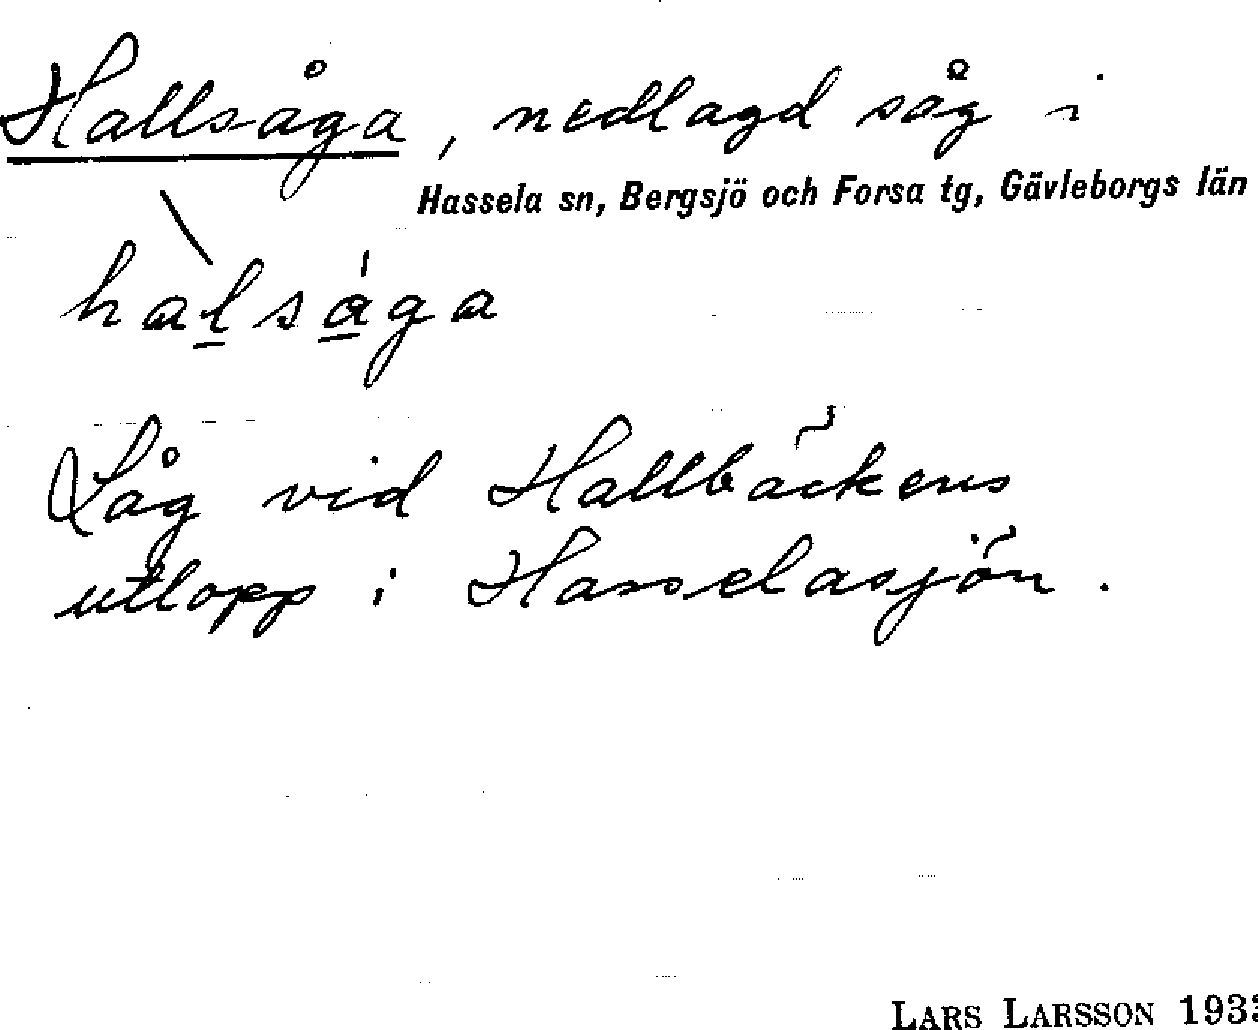 Hallsåga, nedlagd såg i
Hassela sn, Bergsjö och Forsa tg, Gävleborgs län
halsåga
Låg vid Hallbäckens
utlopp i Hasselasjön.
LARS LARSSON 1933